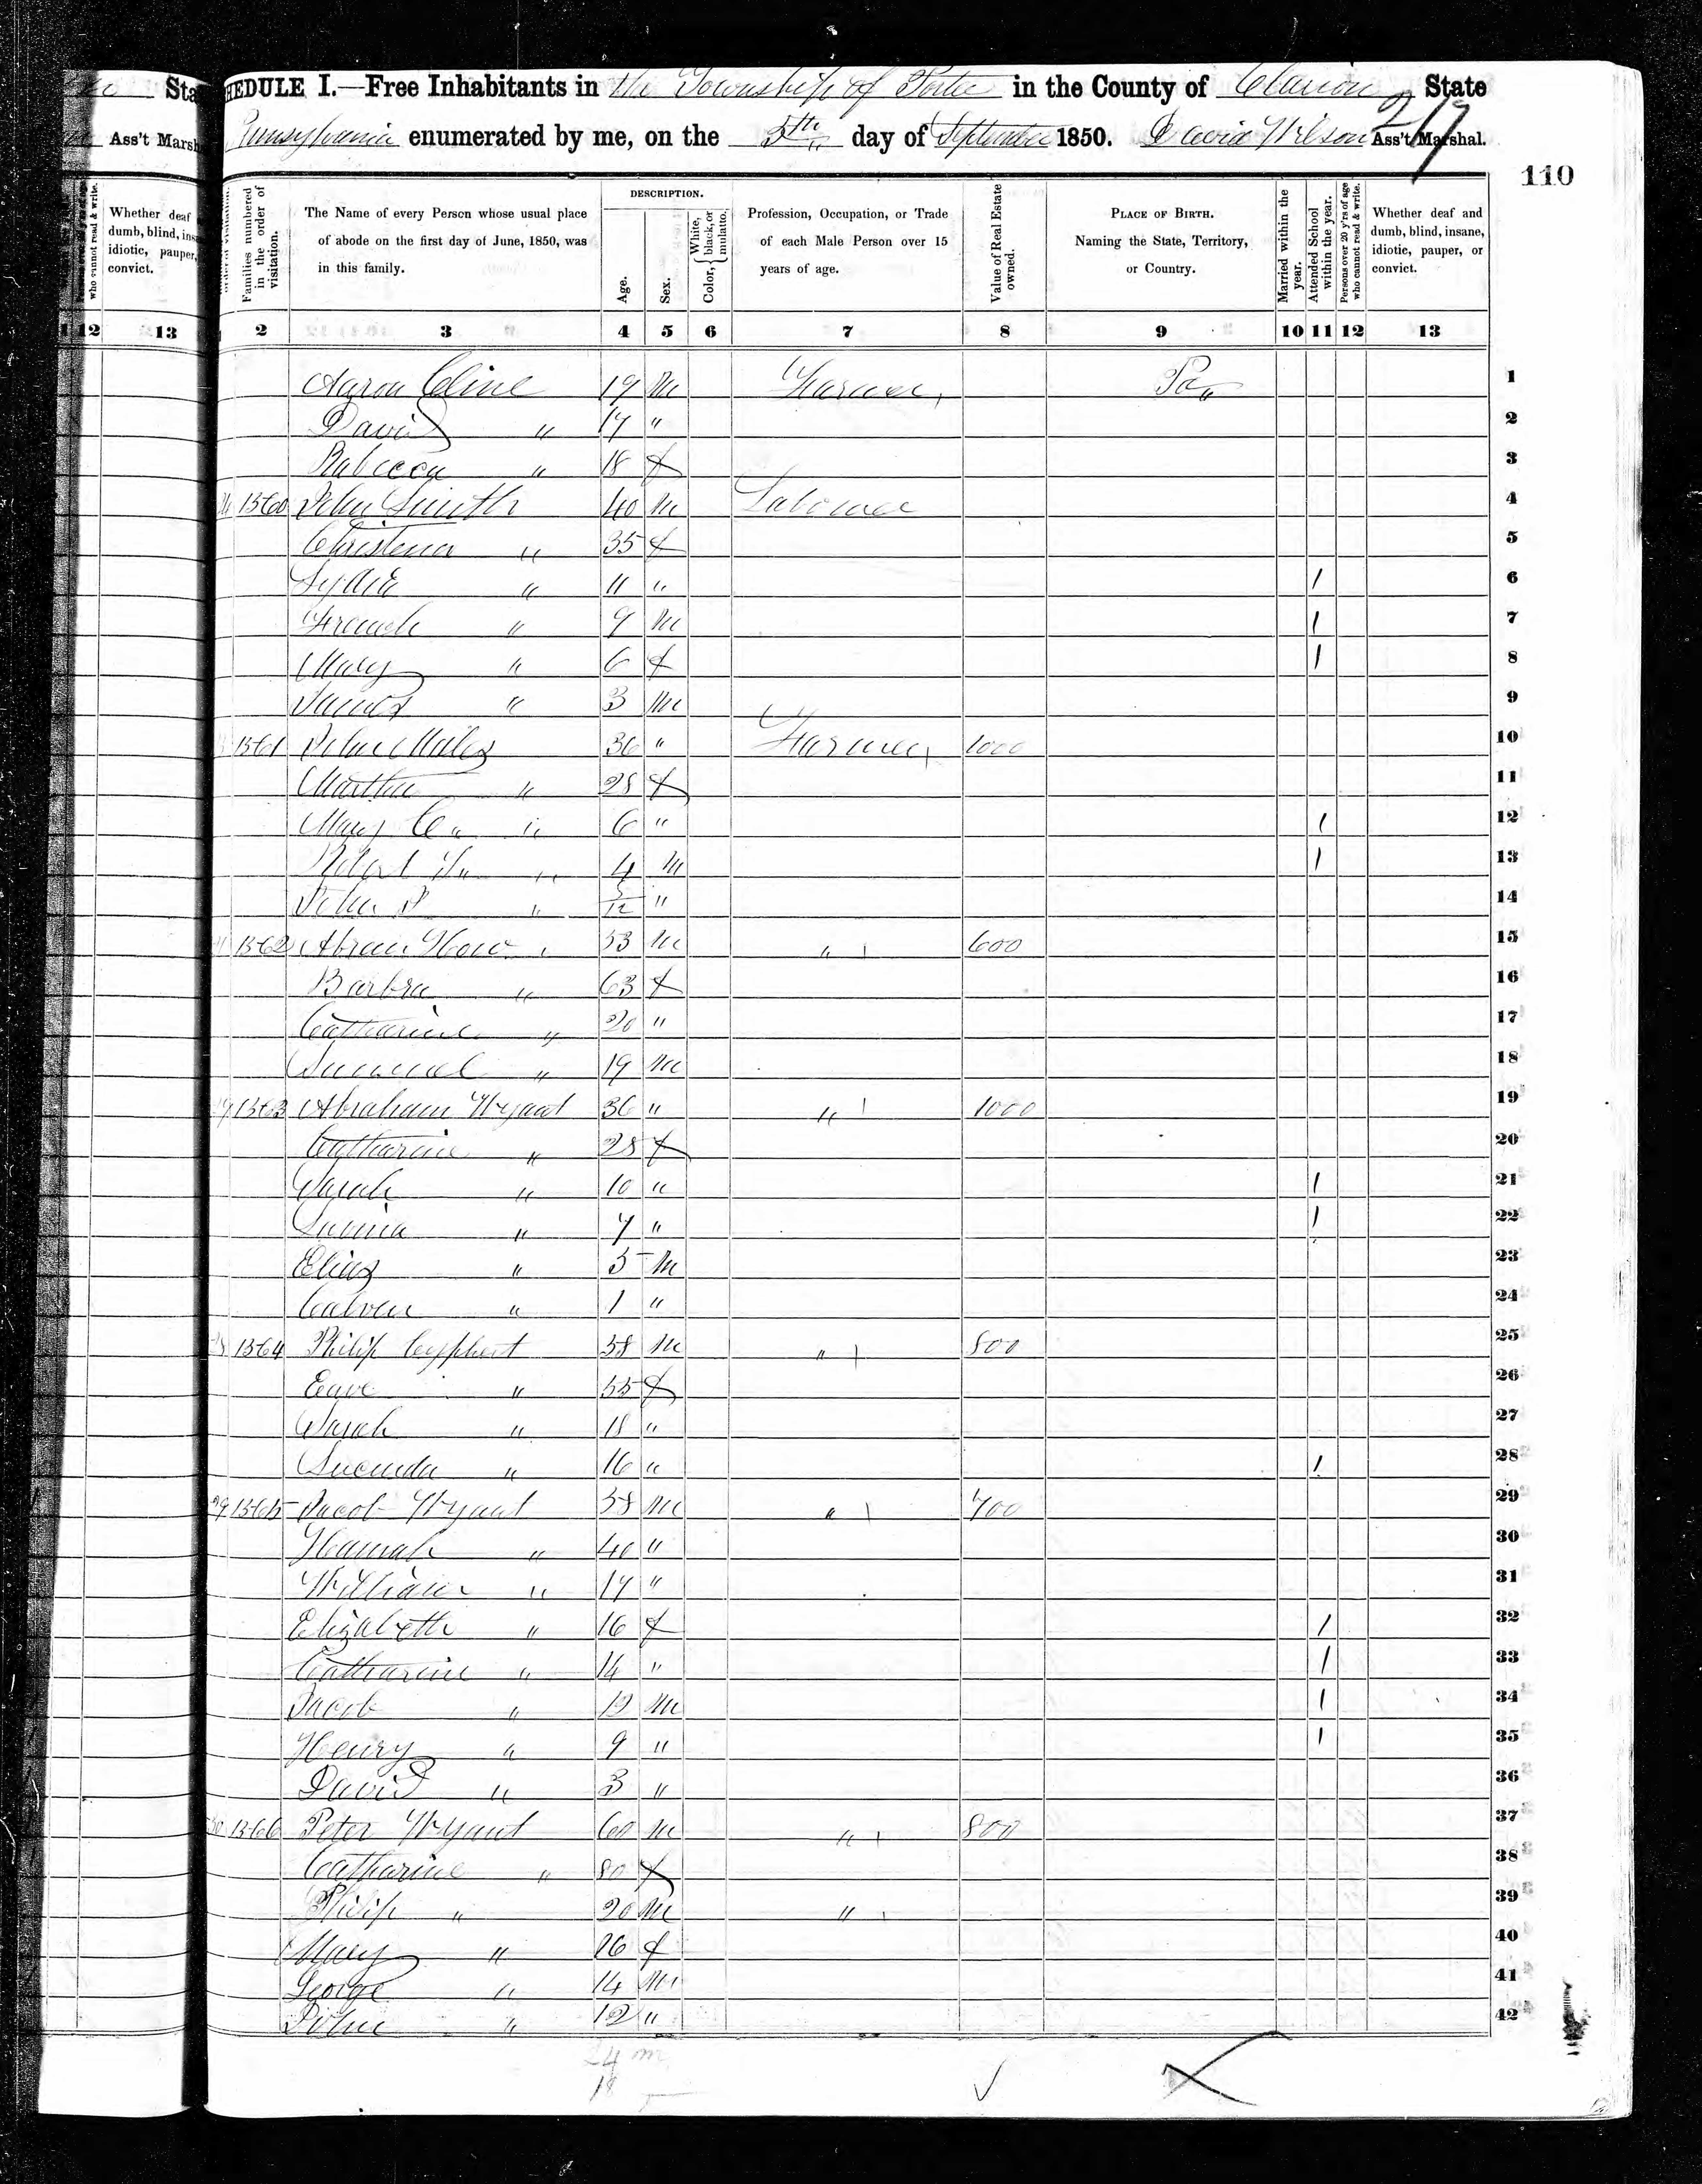 Sta
HEDULE I.—Free Inhabitants in the Township of Porter in the County of Clarion State
Ass't Marsh
Pennsylvania enumerated by me, on the 5th day of September 1850. David Wilson Ass't Marshal.
110
who cannot read & write.
Whether deaf
dumb, blind, ins
idiotic, pauper,
convict.
Families numbered in the order of visitation.
The Name of every Person whose usual place of abode on the first day of June, 1850, was in this family.
DESCRIPTION.
Age.
Sex.
Color, { White, black, or mulatto.
Profession, Occupation, or Trade of each Male Person over 15 years of age.
Value of Real Estate owned.
PLACE OF BIRTH. Naming the State, Territory, or Country.
Married within the year.
Attended School within the year.
Persons over 20 y'rs of age who cannot read & write.
Whether deaf and dumb, blind, insane, idiotic, pauper, or convict.
12 13 2 3 4 5 6 7 8 9 10 11 12 13
Aaron Cline 19 M Farmer, Pa 1
David " 17 " 2
Rebecca " 18 f 3
1360 John Smith 40 M Labourer 4
Christena " 35 f 5
Lydia " 11 " 1 6
" 9 M 1 7
Mary " 6 f 1 8
James " 3 M 9
1361 John Miles 36 " Farmer, 1000 10
Martha " 28 f 11
Mary C " 6 " 1 12
Robert " 4 M 1 13
John " /12 " 14
1362 Abram " 53 M " 600 15
Barbra " 63 f 16
Catharine " 20 " 17
Samual " 19 M 18
1363 Abraham Wyant 36 " " 1000 19
Catharine " 28 f 20
Sarah " 10 " 1 21
" 7 " 1 22
Elias " 5 M 23
Calven " 1 " 24
1364 Philip Cyphert 58 M " 800 25
Eave " 55 f 26
Sarah " 18 " 27
Lucinda " 16 " 1 28
1365 Jacob Wyant 38 M " 700 29
Hannah " 40 " 30
William " 17 " 31
Elizabeth " 16 f 1 32
Catharine " 14 " 1 33
Jacob " 12 M 1 34
Henry " 9 " 1 35
David " 3 " 36
1366 Peter Wyant 60 M " 800 37
Catharine " 80 f 38
Philip " 20 M " 39
Mary " 16 f 40
George " 14 M 41
John " 12 " 42
24 m
18